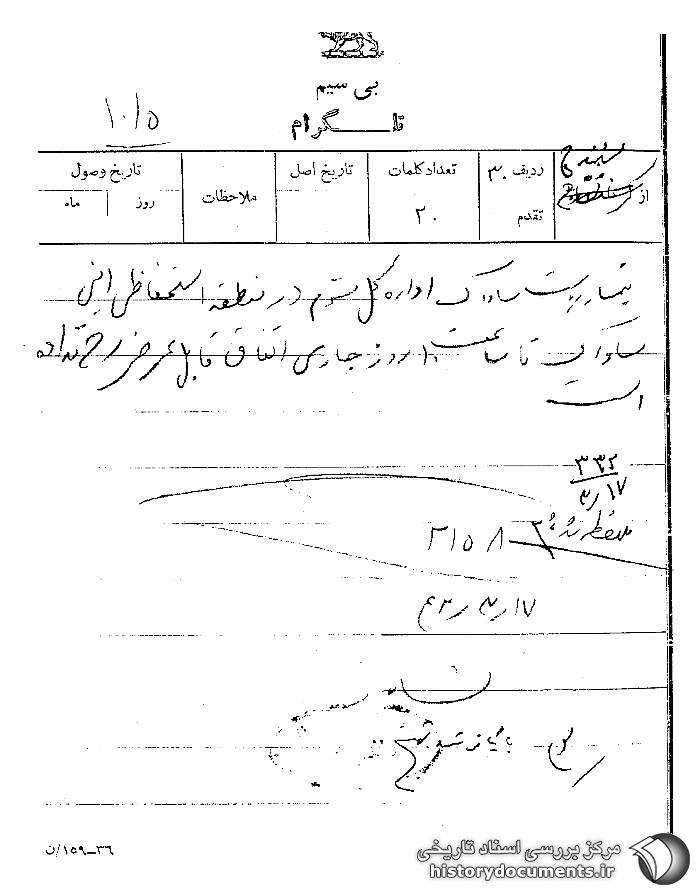 بی سیم
تلگرام
۱۰/۵
از سنندج
ردیف ۳۰
تقدم
تعداد کلمات
۲۰
تاریخ اصل
ملاحظات
تاریخ وصول
روز
ماه
تیمسار ریاست ساواک اداره کل سوم در منطقه استحفاظی این
ساواک تا ساعت ۱۰ روز جاری اتفاق قابل عرض رخ نداده
است
۳۳۲
۱۷/۳
ملاحظه شد
۳۱۵۸
۱۷/۳/۴۲
بایگانی شود
۳۶-۱۵۹/ن
مرکز بررسی اسناد تاریخی
historydocuments.ir